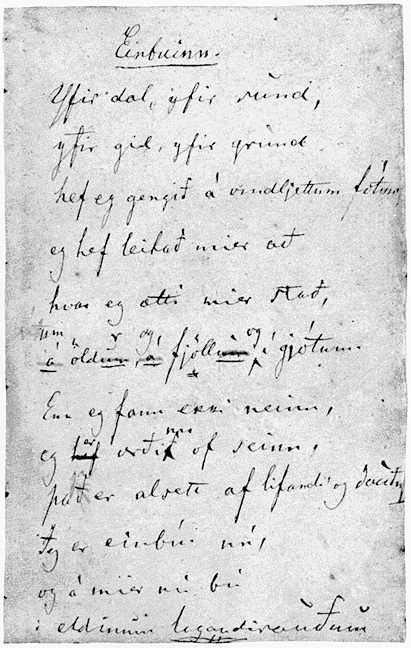 Einbúinn.
Yfir dal, yfir sund,
yfir gil, yfir grund
hef eg gengið á vindljettum fótum
eg hef leitað mier að
hvar eg ætti mier stað,
um r og og
á öldum, á fjöllum í gjótum.
Enn eg fann ekki neinn,
er nn
eg hef orðið of seinn,
það er alsett af lifandi og dauðum
Jeg er einbúi nú,
og á mier nú bú
í eldinum logandi rauðum